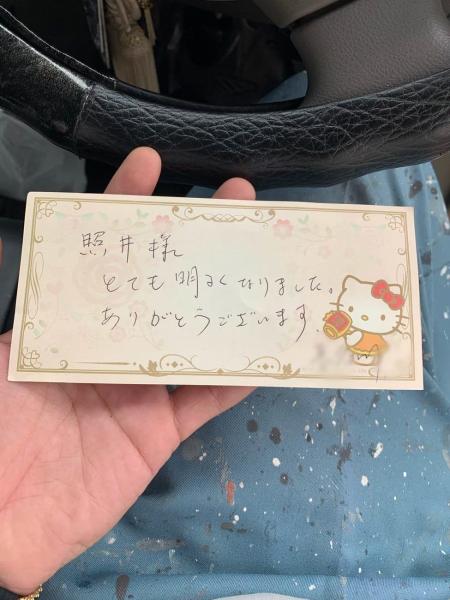 照井様
とても明るくなりました。
ありがとうございます